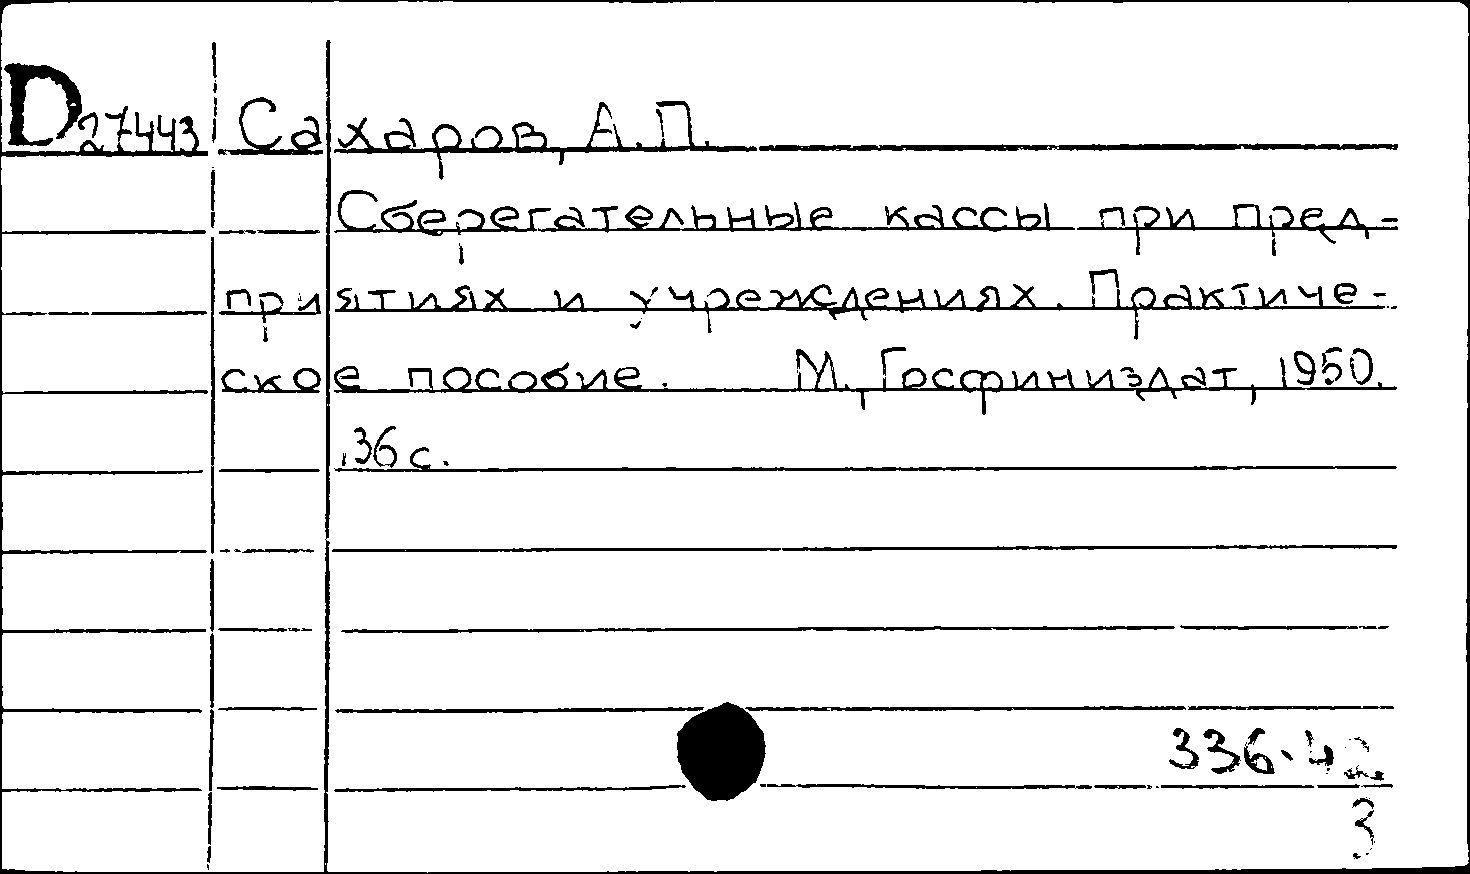 D27443 Сахаров, А.П.
Сберегательные кассы при пред-
приятиях и учреждениях. Практиче-
ское пособие. М., Госфиниздат, 1950.
36 с.
336.42
3